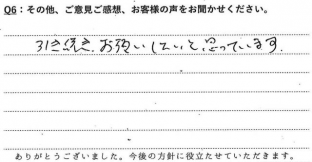 Q6：その他、ご意見ご感想、お客様の声をお聞かせください。
引き続き、お願いしたいと思っています。
ありがとうございました。今後の方針に役立たせていただきます。